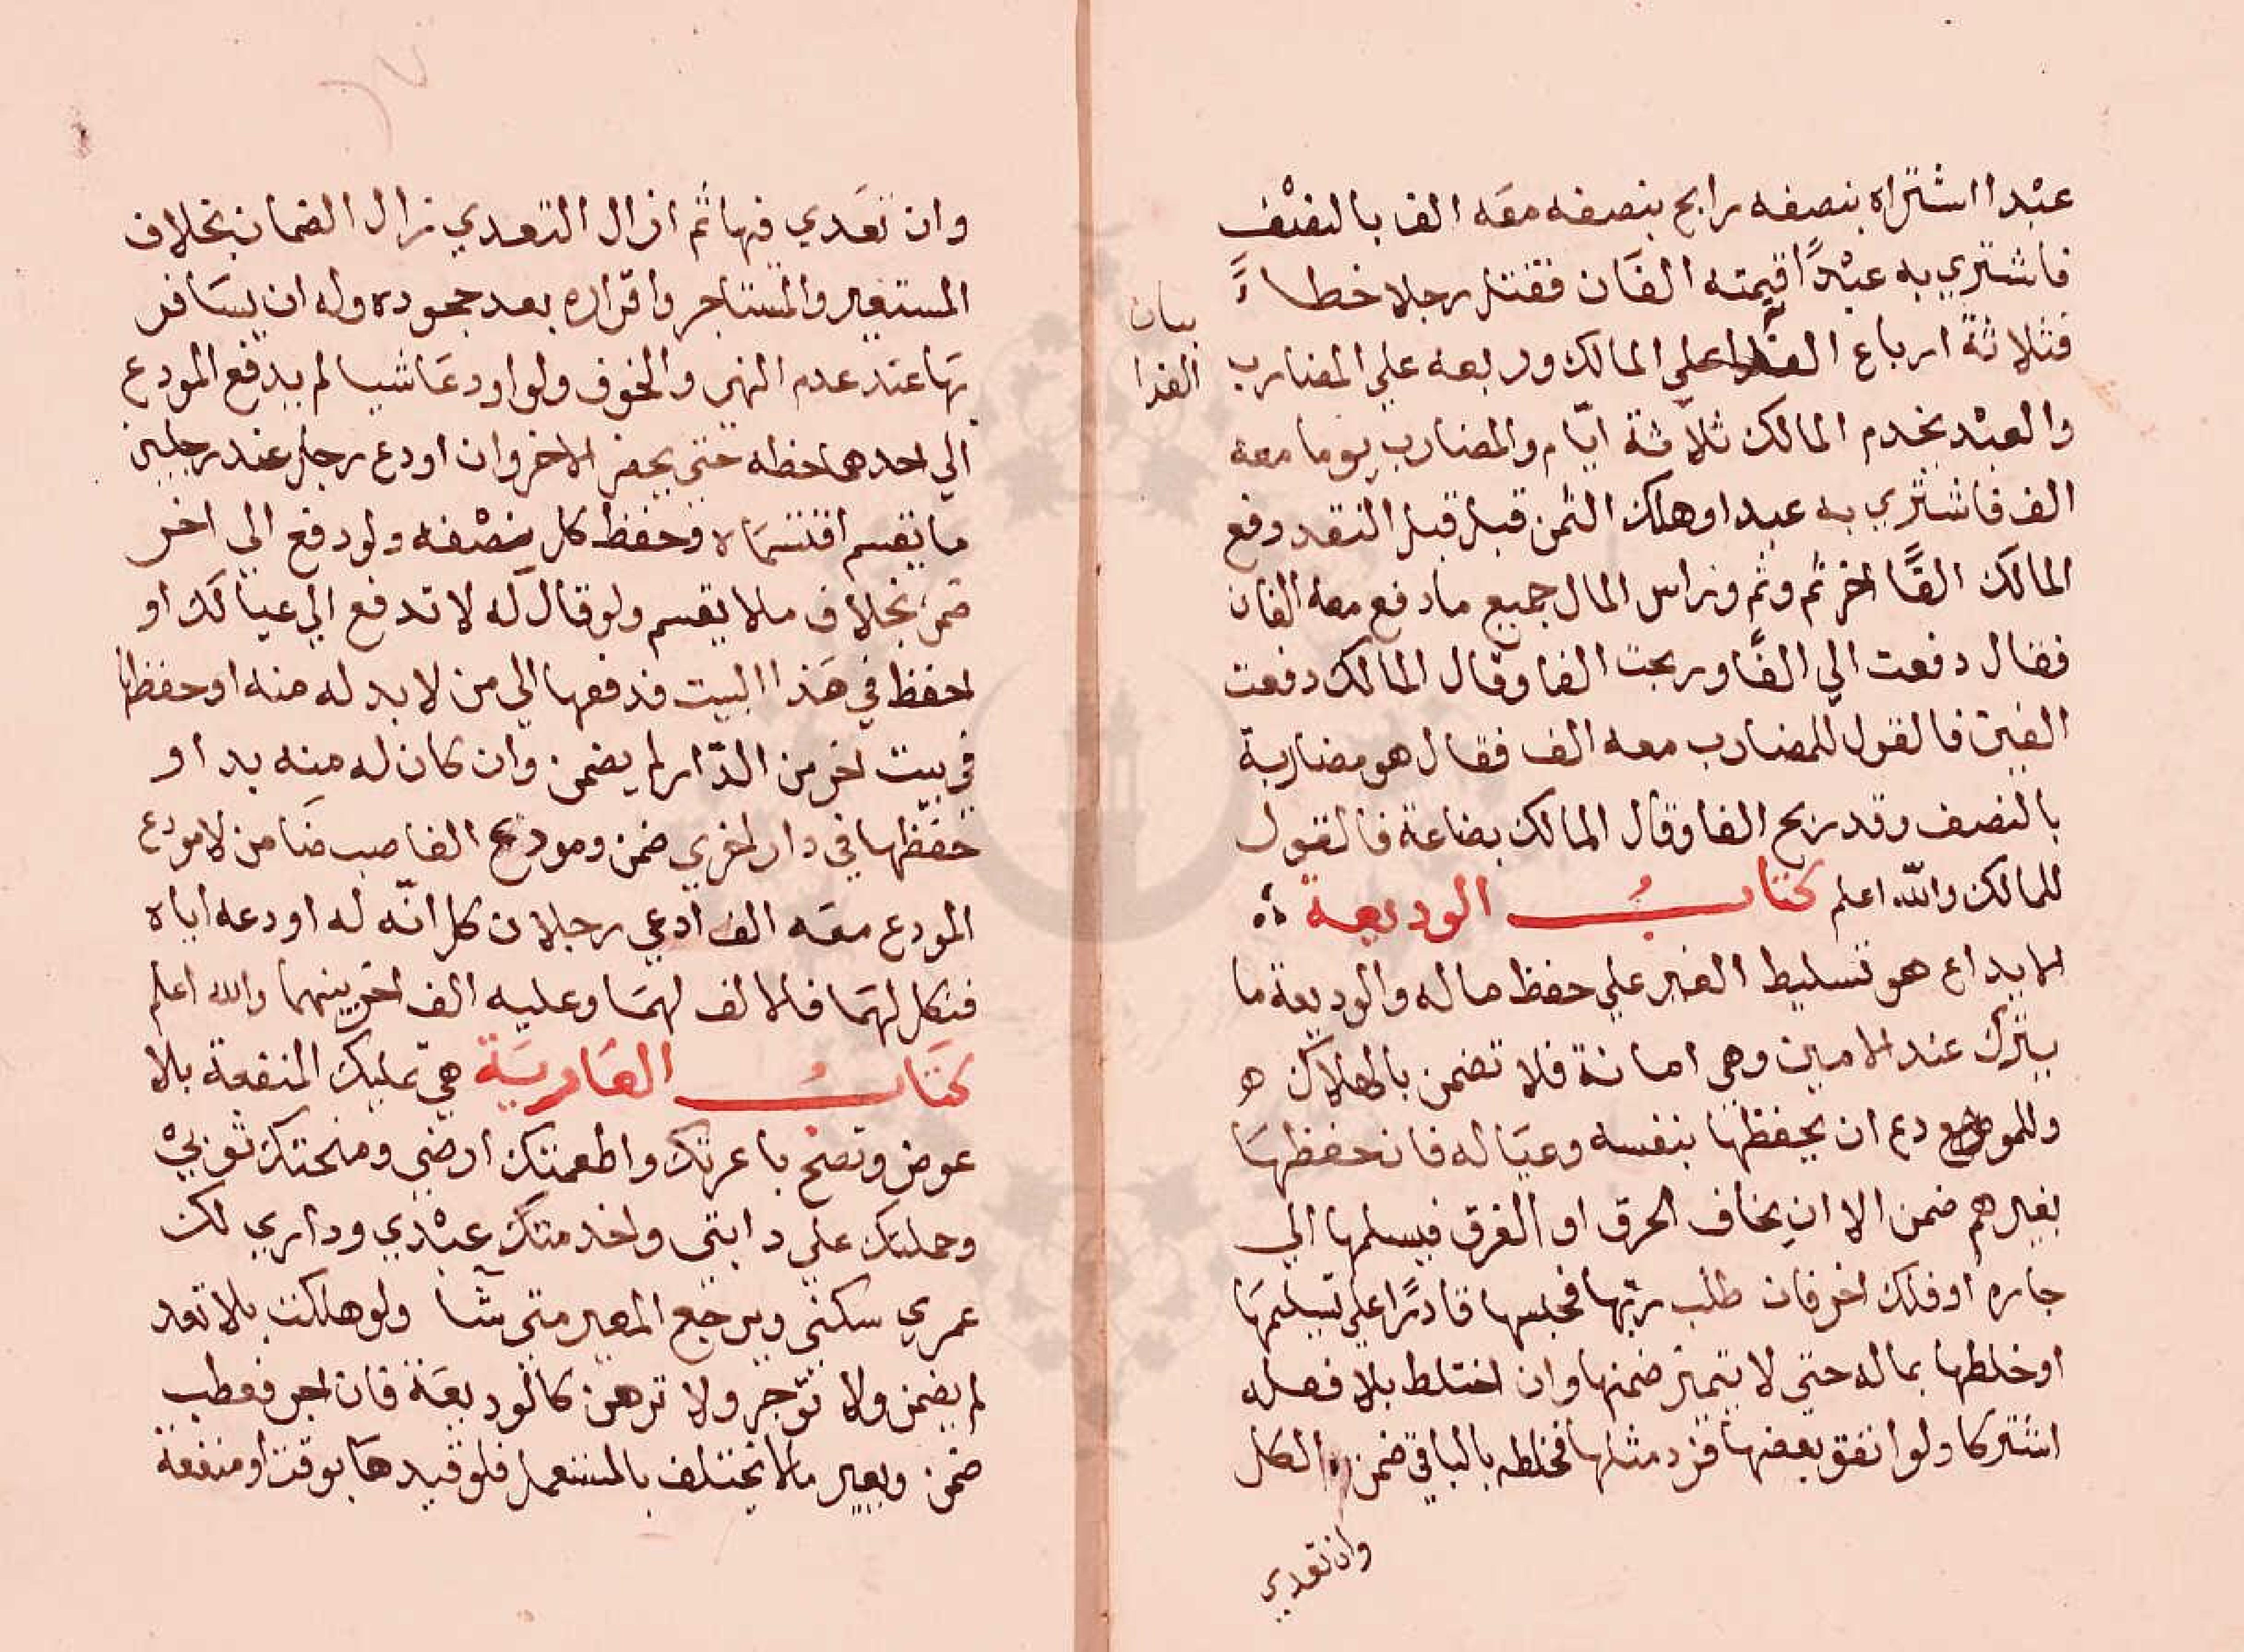 عبْدا اشتراه بنصفه رابح بنصفه معَه الف بالنصْف
فاشتري به عبْدًا قيمته الفَان فقتل رجلا خطاءً
فثلاثة ارباع الفدا علي المالك وربعه علي المضارب
بيان
الفدا
والعبْد يخدم المالك ثلاثة ايّام والمضارب يوما معه
الف فاشتري به عبدا وهلك الثمن قبل قبل النقد دفع
المالك الفًا اخر ثم وثم وراس المال جميع ما دفع معه الفان
فقال دفعت الي الفًا وربحت الفا وقال المالك دفعت
الفين فالقول للمضارب معه الف فقال هو مضاربة
بالنصف وقد ربح الفا وقال المالك بضاعة فالقول
للمالك والله اعلم كتابُ الوديعة
الايداع هو تسليط الغير علي حفظ ماله والوديعة ما
يترك عند الامين وهي امانة فلا تضمن بالهلاك
وللمودع ان يحفظها بنفسه وعيَاله فان حفظهَا
بغيرهم ضمن الا ان يخاف الحرق او الغرق فيسلمها الي
جاره او فلك اخر فان طلب ربّها فحبسها قادرًا علي تسليمهَا
او خلطها بماله حتي لا يتميز ضمنها وان اختلط بلا فعله
اشتركا ولو انفق بعضها فرد مثلها فخلطه بالباقي ضمن الكل
وان تعدي
وان تعَدي فيها ثم ازال التعدي زال الضمان بخلاف
المستعير والمستاجر واقراره بعد جحوده وله ان يسَافر
بهَا عند عدم النهي والخوف ولو اودعَا شيا لم يدفع المودع
الي احدهما حظه حتي يحضر الاخر وان اودع رجل عند رجلين
ما يقسم اقتسمَاه وحفظ كل نصْفه ولو دفع الي اخر
ضمن بخلاف ما لا يقسم ولو قال له لا تدفع الي عيالك او
احفظ في هَذا البيت فدفعها الي من لا بد له منه او حفظها
في بيت اخر من الدّار لم يضمن وان كان له منه بد او
حفظها في دار اخري ضمن ومودع الغاصب ضَامن لا مودع
المودع معَه الف ادعي رجلان كل انّه له اودعه اياه
فنكل لهمَا فالالف لهمَا وعليه الف اخر بينهما والله اعلم
كتَابُ العَاريَة هي تمليك المنفعة بلا
عوض وتصح باعرتك واطعمتك ارضي ومنحتك ثوبيْ
وحملتك علي دابتي واخدمتك عبْدي وداري لك
عمري سكني ويرجع المعير متي شآ ولو هلكت بلا تعد
لم يضمن ولا تؤجر ولا ترهن كالوديعَة فان اجر فعطب
ضمن ويعير ما لا يختلف بالمستعمل فلو قيدهَا بوقت او منفعة